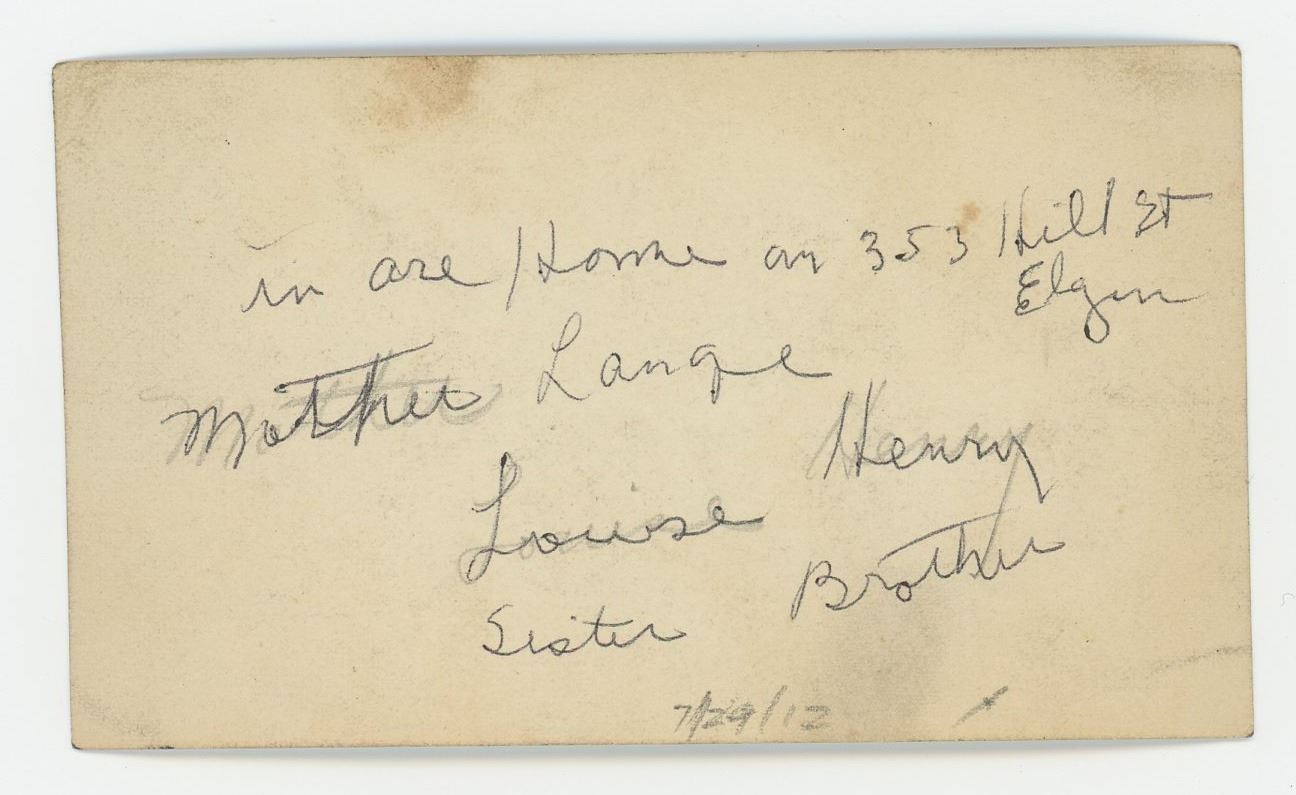 in are Home on 353 Hill St
Elgin
Mother Lange
Louise Henry
Sister Brother
7/29/12